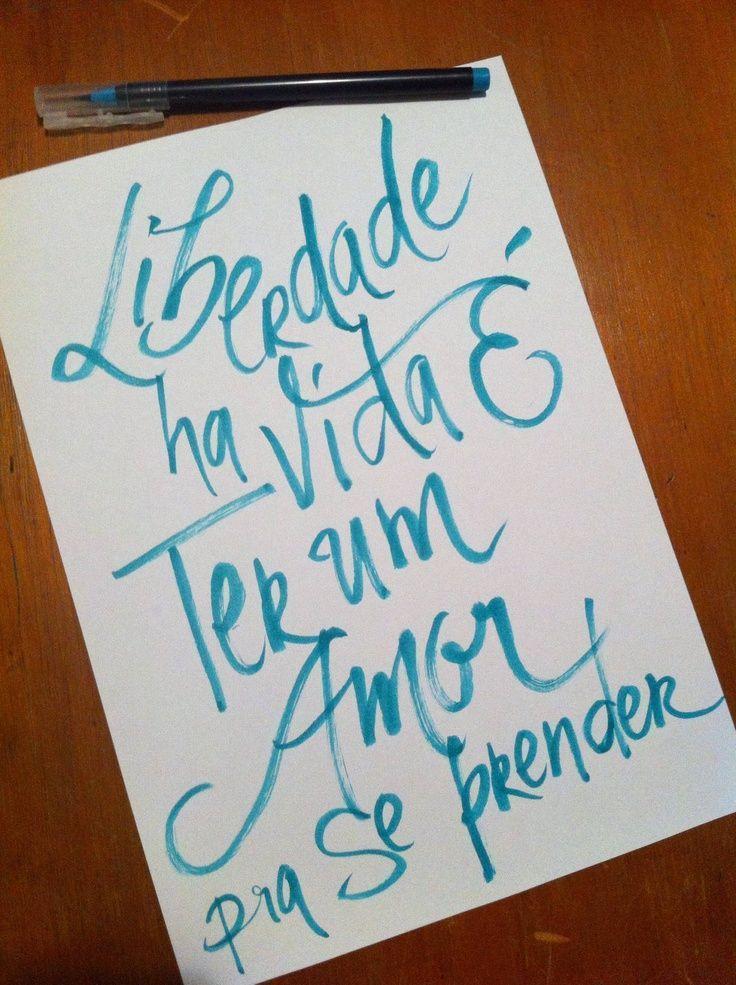 Liberdade
na Vida É
Ter um
Amor
pra Se prender